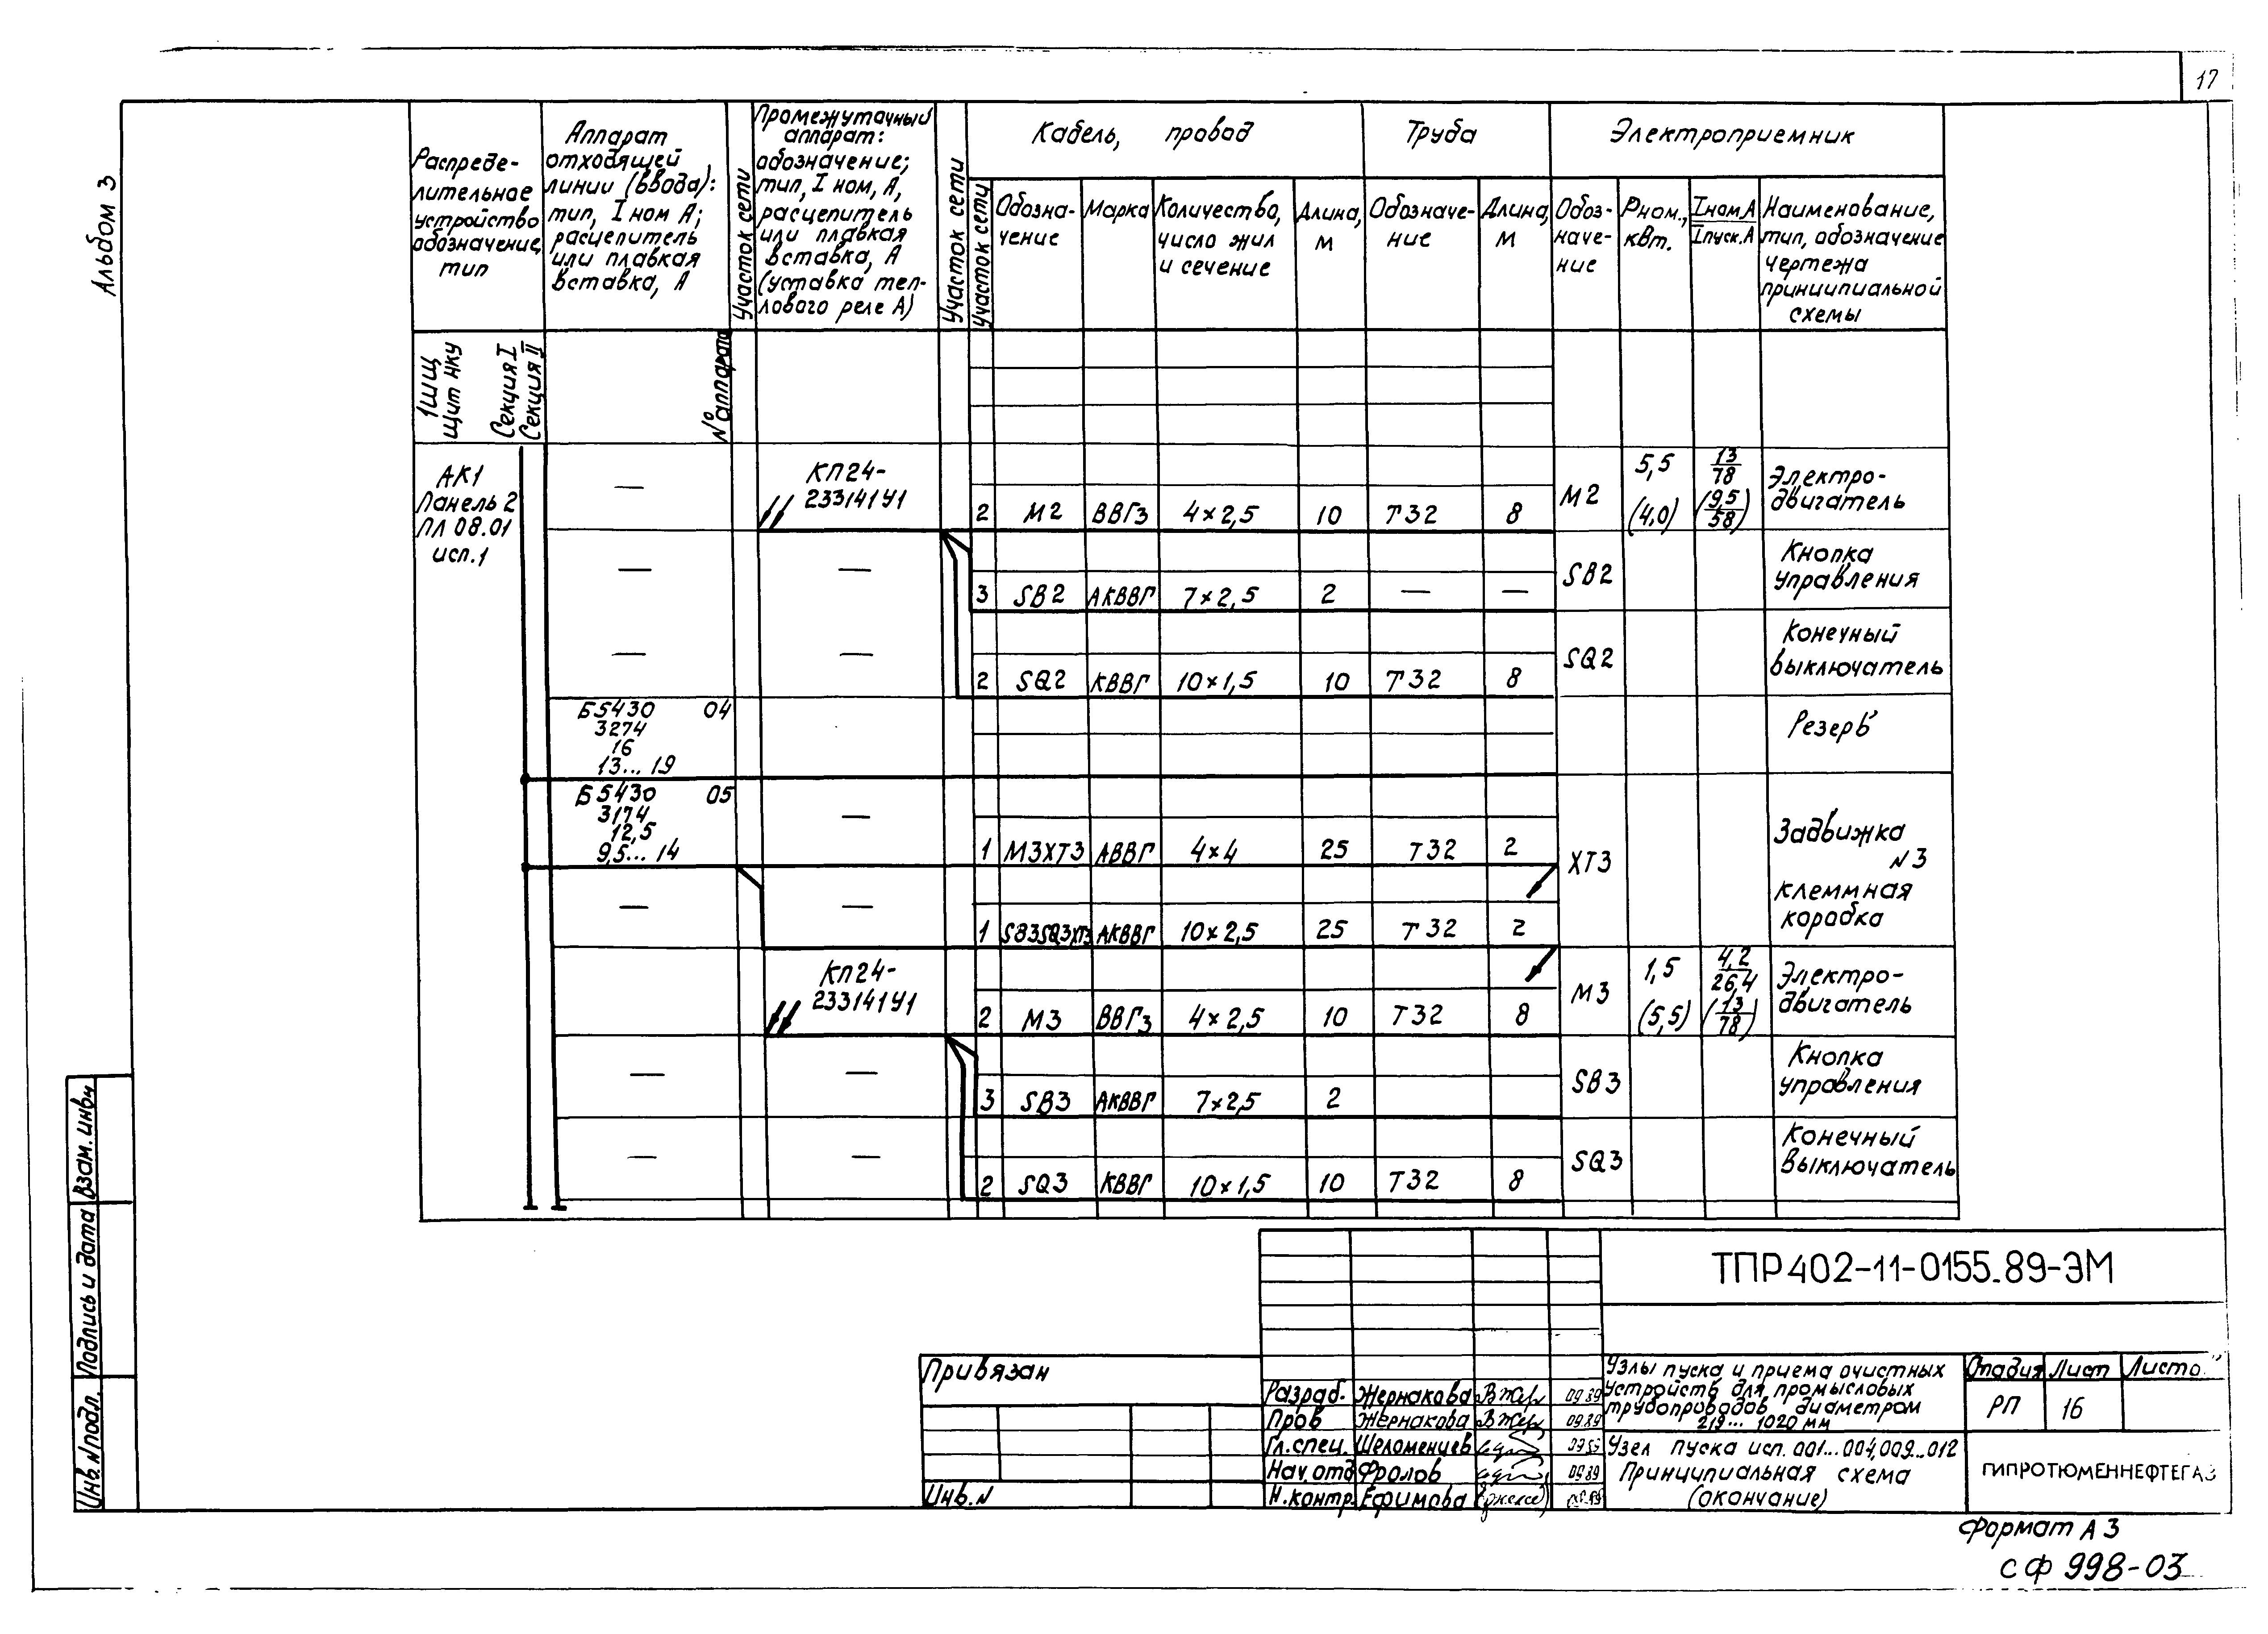 17
Альбом 3
Распреде-
лительное
устройство
обозначение,
тип
Аппарат
отходящей
линии (ввода):
тип, I ном А;
расцепитель
или плавкая
вставка, А
Участок сети
Промежуточный
аппарат:
обозначение;
тип, I ном, А,
расцепитель
или плавкая
вставка, А
(уставка теп-
лового реле А)
Участок сети
Участок сети
Кабель, провод
Труба
Электроприемник
Обозна-
чение
Марка
Количество,
число жил
и сечение
Длина,
м
Обозначе-
ние
Длина,
м
Обоз-
наче-
ние
Рном.,
кВт.
Iном.А
Iпуск.А
Наименование,
тип, обозначение
чертежа
принципиальной
схемы
1ШЩ
Щит НКУ
Секция I
Секция II
№ аппарата
АК1
Панель 2
ПЛ 08.01
исп.1
—
КП24-
233141У1
2 М2 ВВГз 4×2,5 10 Т32 8
М2
5,5
(4,0)
13
78
(9,5
58)
Электро-
двигатель
— —
3 SB2 АКВВГ 7×2,5 2 — —
SB2
Кнопка
управления
— —
2 SQ2 КВВГ 10×1,5 10 Т32 8
SQ2
Конечный
выключатель
Б5430 04
3274
16
13... 19
Резерв
Б5430 05
3174
12,5
9,5... 14
—
1 М3ХТ3 АВВГ 4×4 25 Т32 2
ХТ3
Задвижка
N3
клеммная
коробка
— —
1 SB3SQ3ХТ3 АКВВГ 10×2,5 25 Т32 2
КП24-
233141У1
2 М3 ВВГз 4×2,5 10 Т32 8
М3
1,5
(5,5)
4,2
26,4
(13
78)
Электро-
двигатель
— —
3 SB3 АКВВГ 7×2,5 2
SB3
Кнопка
управления
— —
2 SQ3 КВВГ 10×1,5 10 Т32 8
SQ3
Конечный
выключатель
Взам. инв N
Подпись и дата
Инв. N подл.
ТПР402-11-0155.89-ЭМ
Привязан
Инв. N
Разраб. Жернакова В Жер 09.89
Пров Жернакова В Жер 09.89
Гл. спец. Шеломенцев
Нач. отд Фролов 09.89
Н. контр. Ефимова
Узлы пуска и приема очистных
устройств для промысловых
трубопроводов диаметром
219... 1020 мм
Стадия Лист Листо
РП 16
Узел пуска исп. 001...004,009...012
Принципиальная схема
(окончание)
ГИПРОТЮМЕННЕФТЕГАЗ
Формат А3
сф 998-03